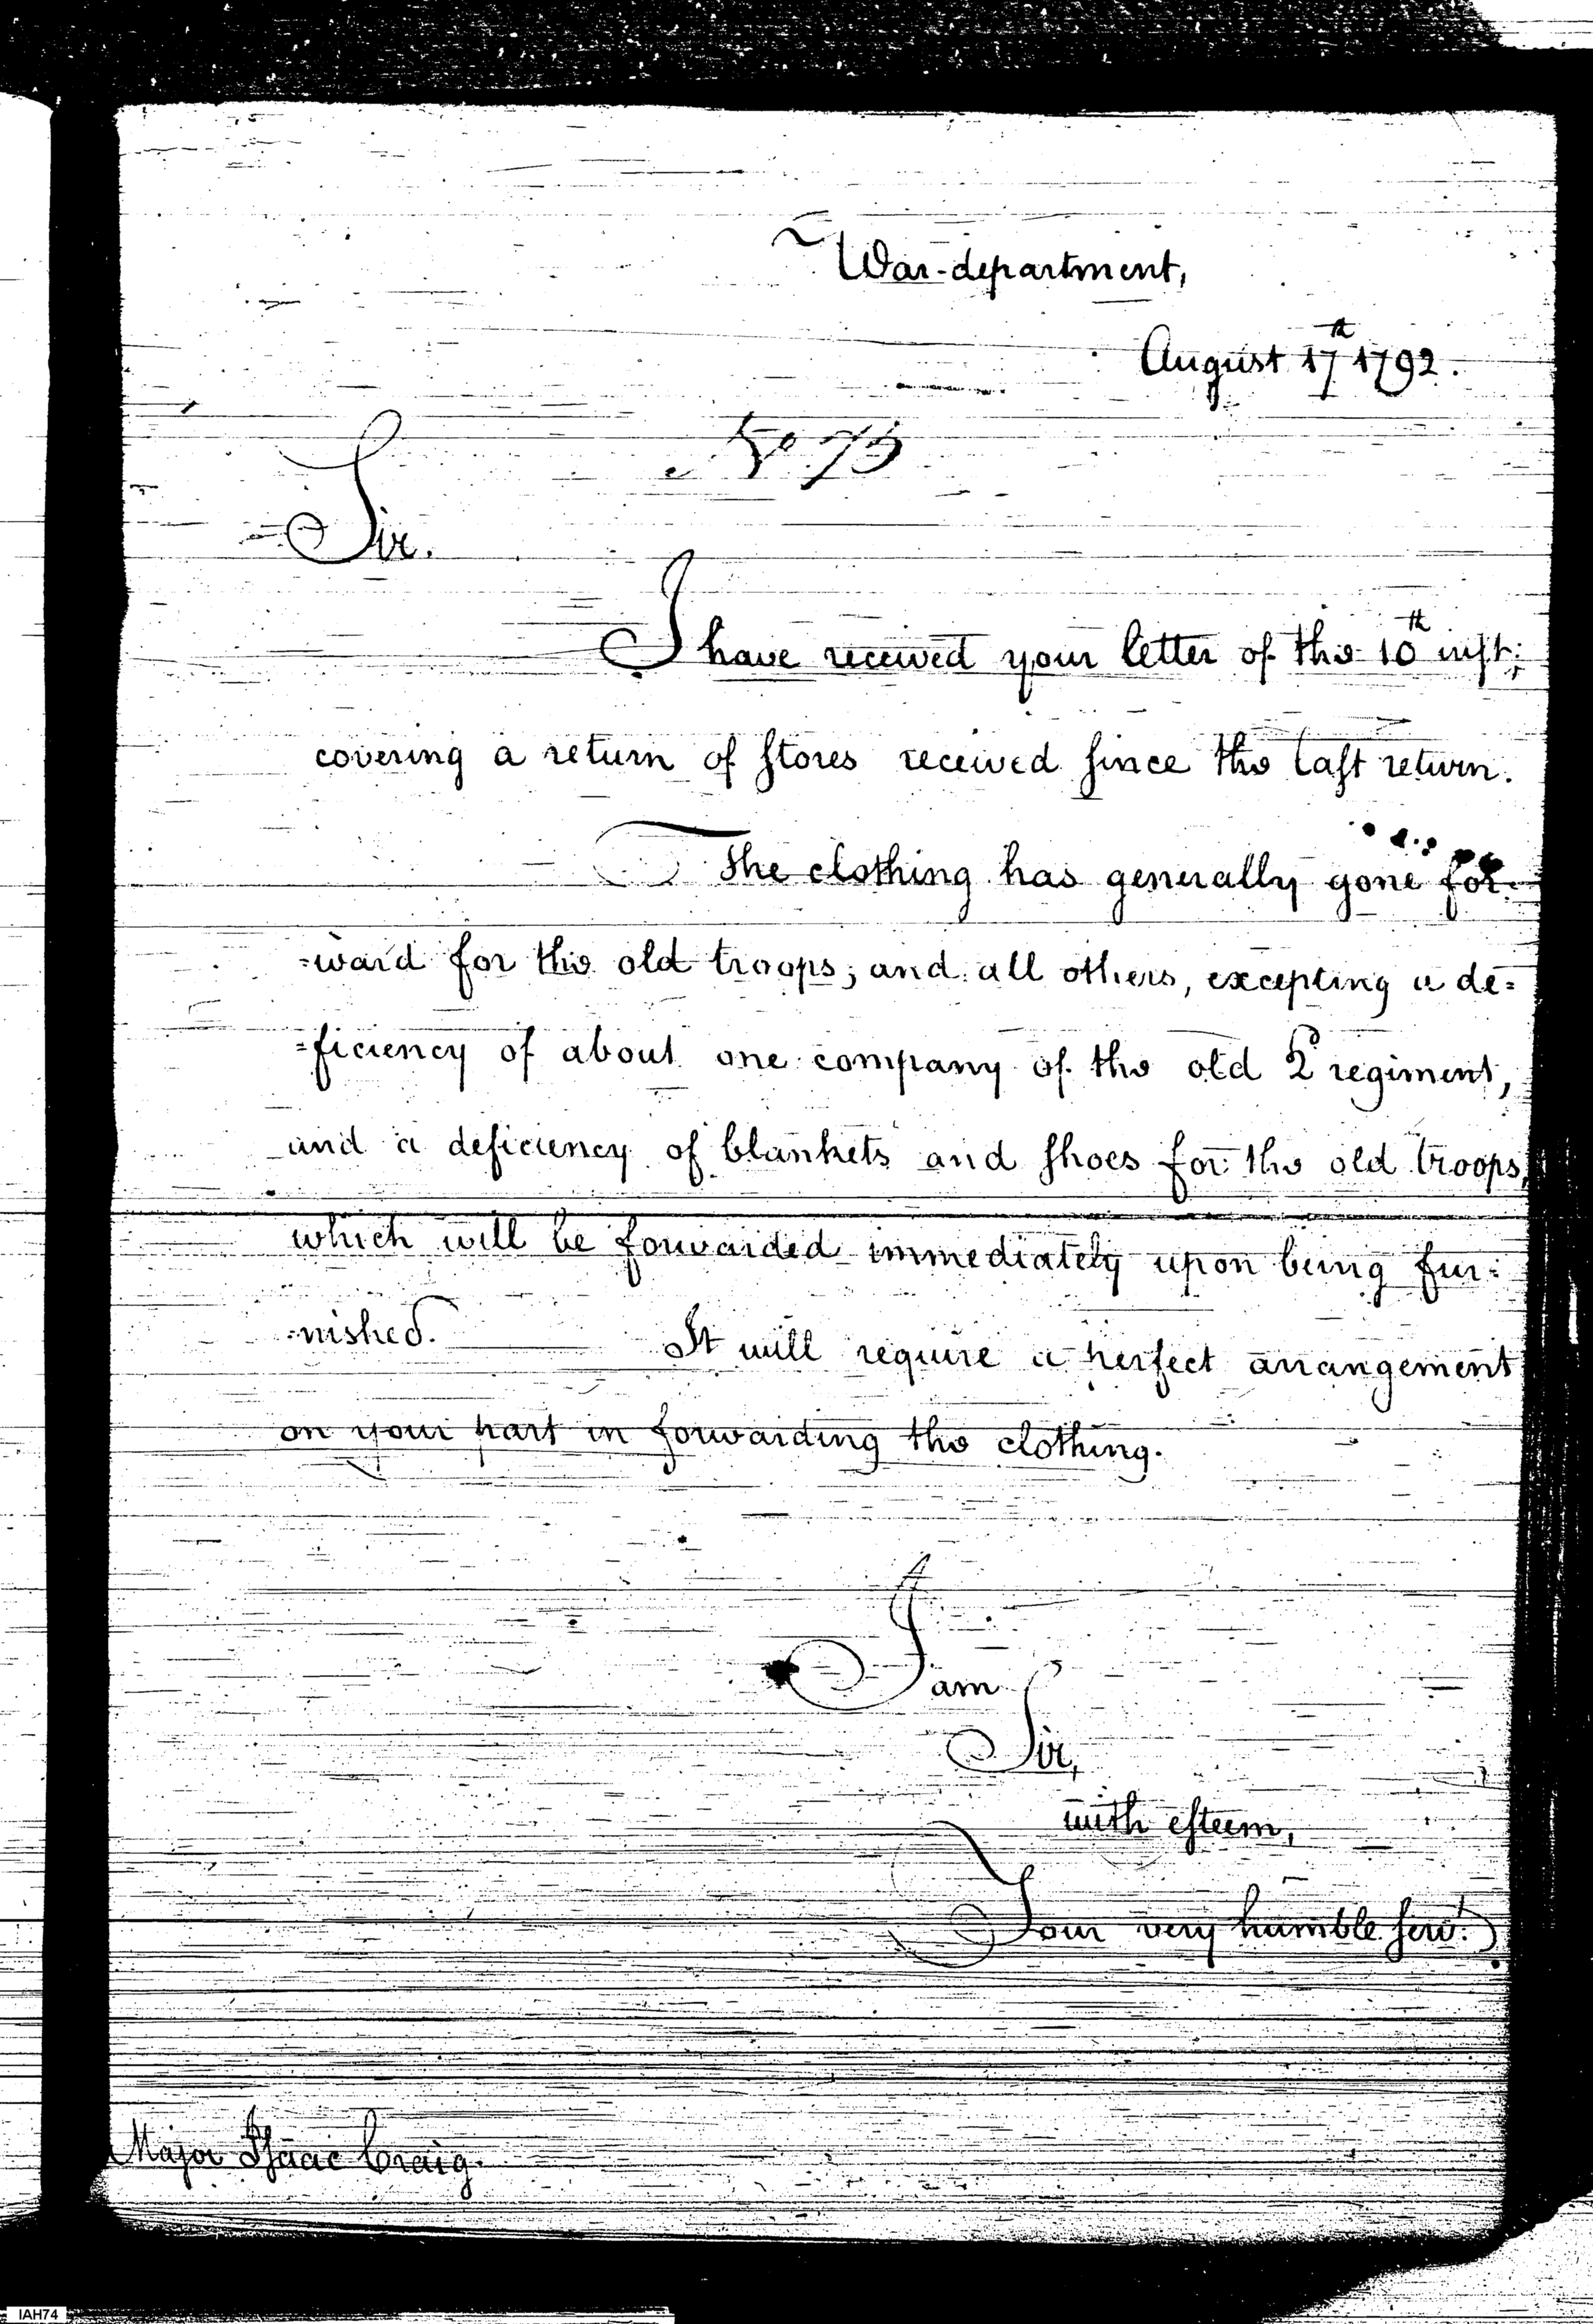 War-department,
August 17th 1792.
No 75
Sir.
I have received your letter of the 10th inſt;
covering a return of ſtores received ſince the laſt return.
The clothing has generally gone for=
=ward for the old troops, and all others, excepting a de=
=ficiency of about one company of the old 2d regiment,
and a deficiency of blankets and ſhoes for the old troops,
which will be forwarded immediately upon being fur=
=nished. It will require a perfect arrangement
on your part in forwarding the clothing.
I am
Sir,
with eſteem,
Your very humble ſervt.
Major Iſaac Craig.
IAH74